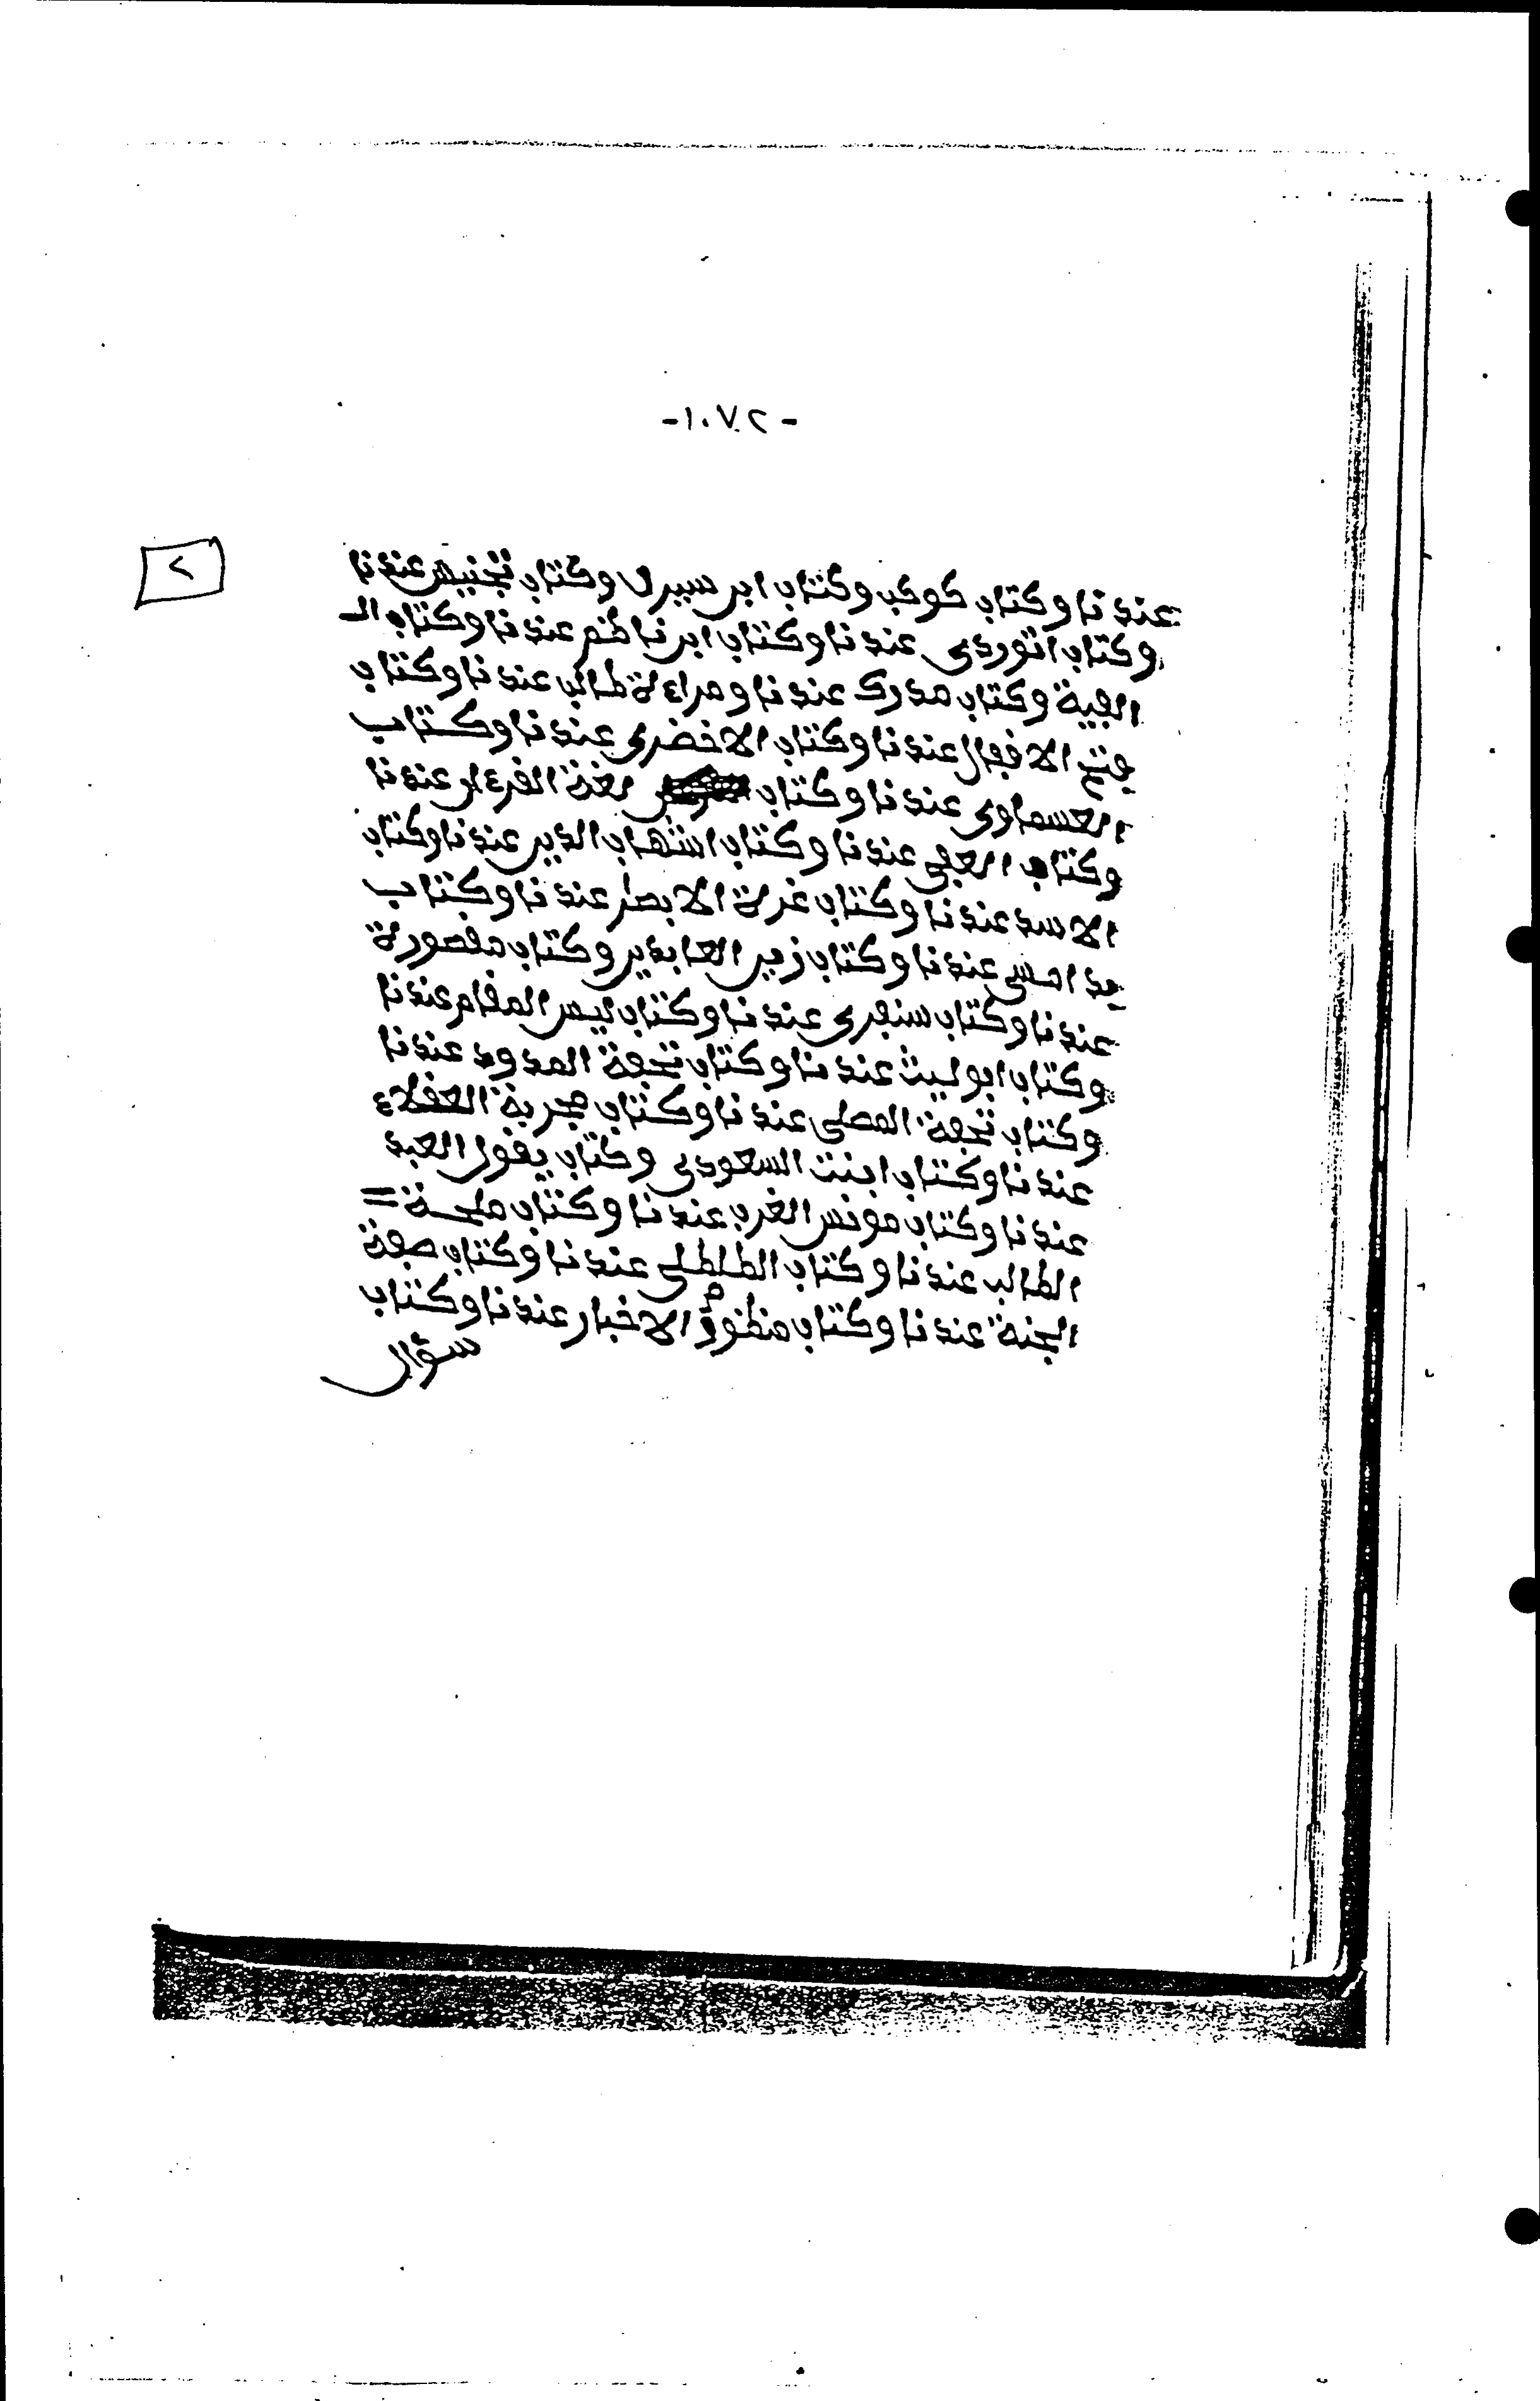 -١٠٧٢-
٢
عندنا وكتاب كوكب وكتاب ابن سيرى وكتاب تجنيس عندنا
وكتاب اتوردى عندنا وكتاب ابن ناظم عندنا وكتاب الـ
الفية وكتاب مدرك عندنا ومراءة طالب عندنا وكتاب
فتح الافعال عندنا وكتاب الاخضرى عندنا وكتاب
العسماوى عندنا وكتاب لغة القرءان عندنا
وكتاب العفى عندنا وكتاب اشهاب الدين عندنا وكتاب
الاسد عندنا وكتاب غرة الابصر عندنا وكتاب
عندنا وكتاب زين العابدين وكتاب مقصورة
عندنا وكتاب سنفرى عندنا وكتاب ليس المقام عندنا
وكتاب ابوليث عندنا وكتاب تحفة المدود عندنا
وكتاب تحفة المصلى عندنا وكتاب مجربة العقلاء
عندنا وكتاب ابنت السعودى وكتاب يقول العبد
عندنا وكتاب مونس الغرب عندنا وكتاب ملحة =
الطالب عندنا وكتاب الطلطلى عندنا وكتاب صفة
الجنة عندنا وكتاب منظومة الاخبار عندنا وكتاب
سؤال